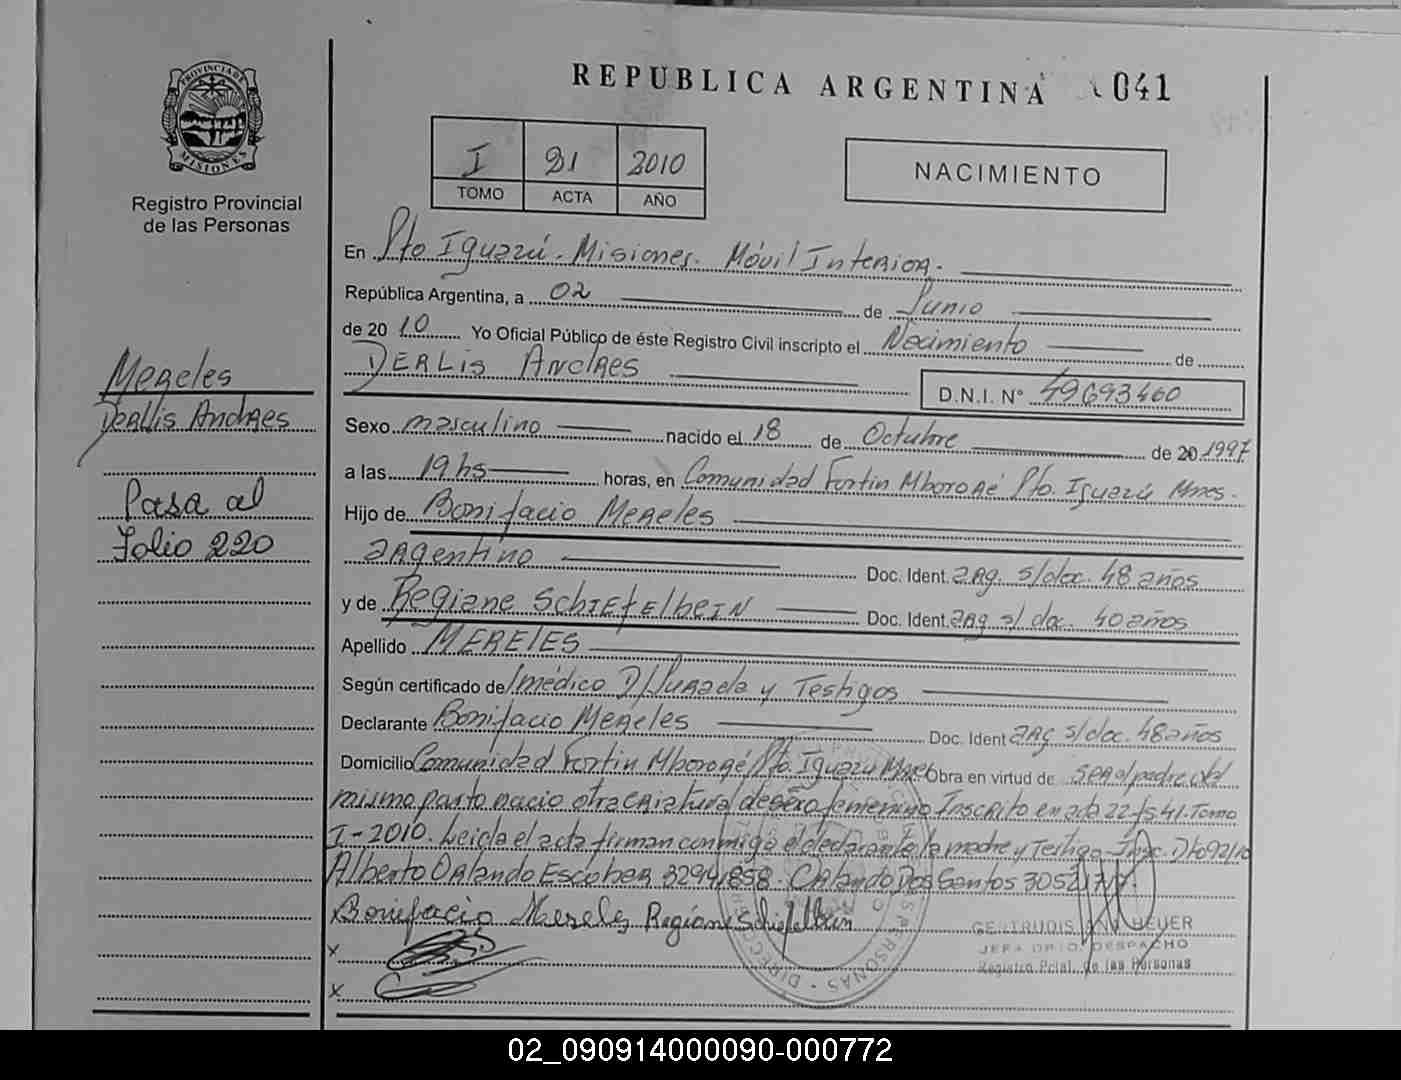 REPUBLICA ARGENTINA 041
PROVINCIA DE MISIONES
Registro Provincial
de las Personas
I 21 2010
TOMO ACTA AÑO
NACIMIENTO
En Pto Iguazú. Misiones. Móvil Interior.
República Argentina, a 02 de Junio
de 20 10 Yo Oficial Público de éste Registro Civil inscripto el Nacimiento de
DERLis Andres
D.N.I. N° 49693460
Mereles
Derlis Andres
Pasa al
Folio 220
Sexo masculino nacido el 18 de Octubre de 20 1997
a las 19 hs horas, en Comunidad Fortin Mbororé Pto. Iguazú Mnes.
Hijo de Bonifacio Mereles
argentino Doc. Ident. arg. s/doc. 48 años
y de Regiane Schiefelbein Doc. Ident. arg s/ doc. 40 años
Apellido MERELES
Según certificado de médico D/Jurada y Testigos
Declarante Bonifacio Mereles Doc. Ident arg s/doc. 48 años
Domicilio Comunidad Fortin Mbororé Pto. Iguazú Mnes Obra en virtud de ser el padre del
mismo parto nacio otra criatura de sexo femenino Inscrito en acta 22 fs 41. Tomo
I - 2010. Leida el acta firman conmigo el declarante la madre y Testigo Insc. Dto 92/10
Alberto Orlando Escober 32941858. Orlando Dos Santos
Bonifacio Mereles Regiane Schiefelbein
X
X
GERTRUDIS HEUER
JEFA DPTO. DESPACHO
Registro Pcial. de las Personas
02_090914000090-000772